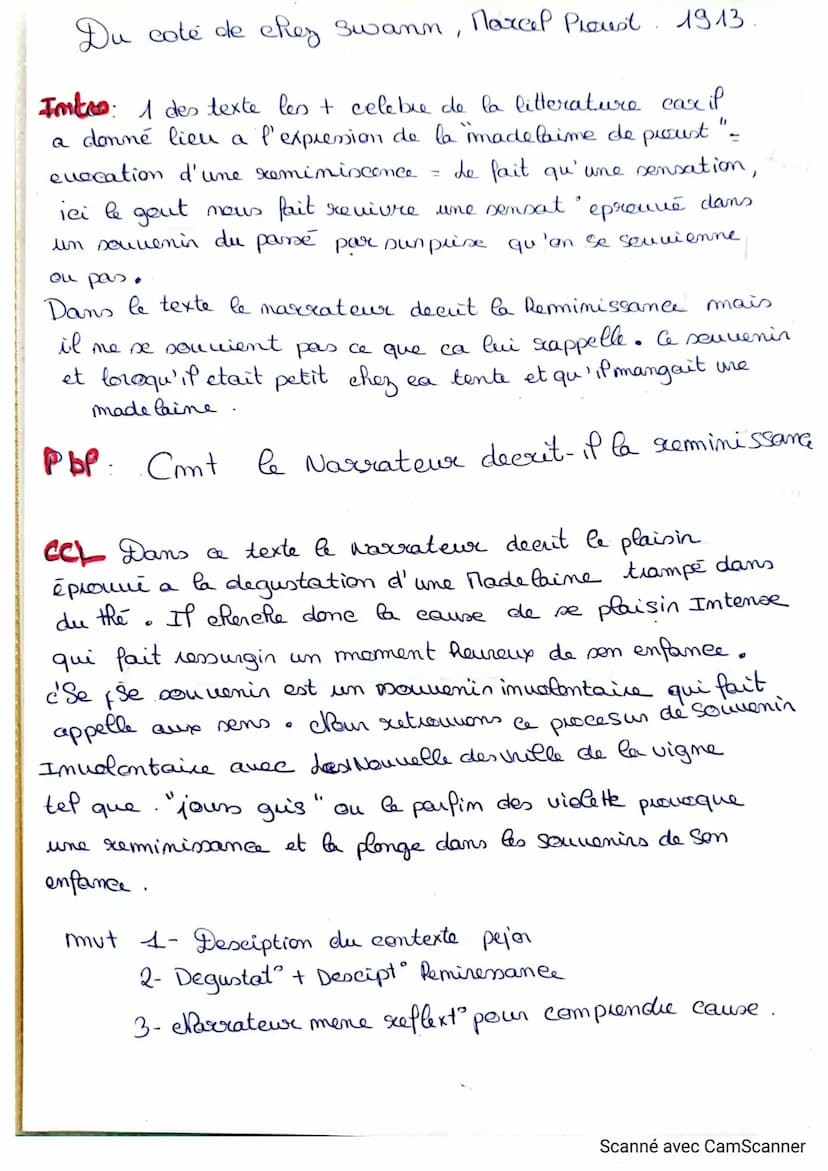 Du coté de chez Swann, Marcel Proust. 1913.
Intro: 1 des texte les + celebre de la litterature car il
a donné lieu a l'expression de la "madelaine de proust" =
evocation d'une reminiscence = de fait qu'une sensation,
ici le gout nous fait revivre une sensat° eprouvé dans
un souvenir du passé par surprise qu'on se souvienne
ou pas.
Dans le texte le narrateur decrit la Remminissance mais
il ne se souvient pas ce que ca lui rappelle. Ce souvenir
et lorsqu'il etait petit chez sa tente et qu'il mangait une
madelaine.
Pbl: Cmt le Narrateur decrit-il la reminissance
CCL Dans ce texte le Narrateur decrit le plaisir
éprouvé a la degustation d'une Madelaine trampé dans
du thé. Il cherche donc la cause de se plaisir Intense
qui fait ressurgir un moment heureux de son enfance.
Se souvenir est un souvenir involontaire qui fait
appelle aux sens. Nous retrouvons ce procesus de souvenir
Involontaire avec les Nouvelle des vrille de la vigne
tel que "jours gris" ou le parfin des violette provoque
une remminissance et la plonge dans les souvenirs de son
enfance.
mvt 1- Desciption du contexte pejor
2- Degustat° + Descipt° Remiressance
3- Narrateur mene reflext° pour comprendre cause.
Scanné avec CamScanner